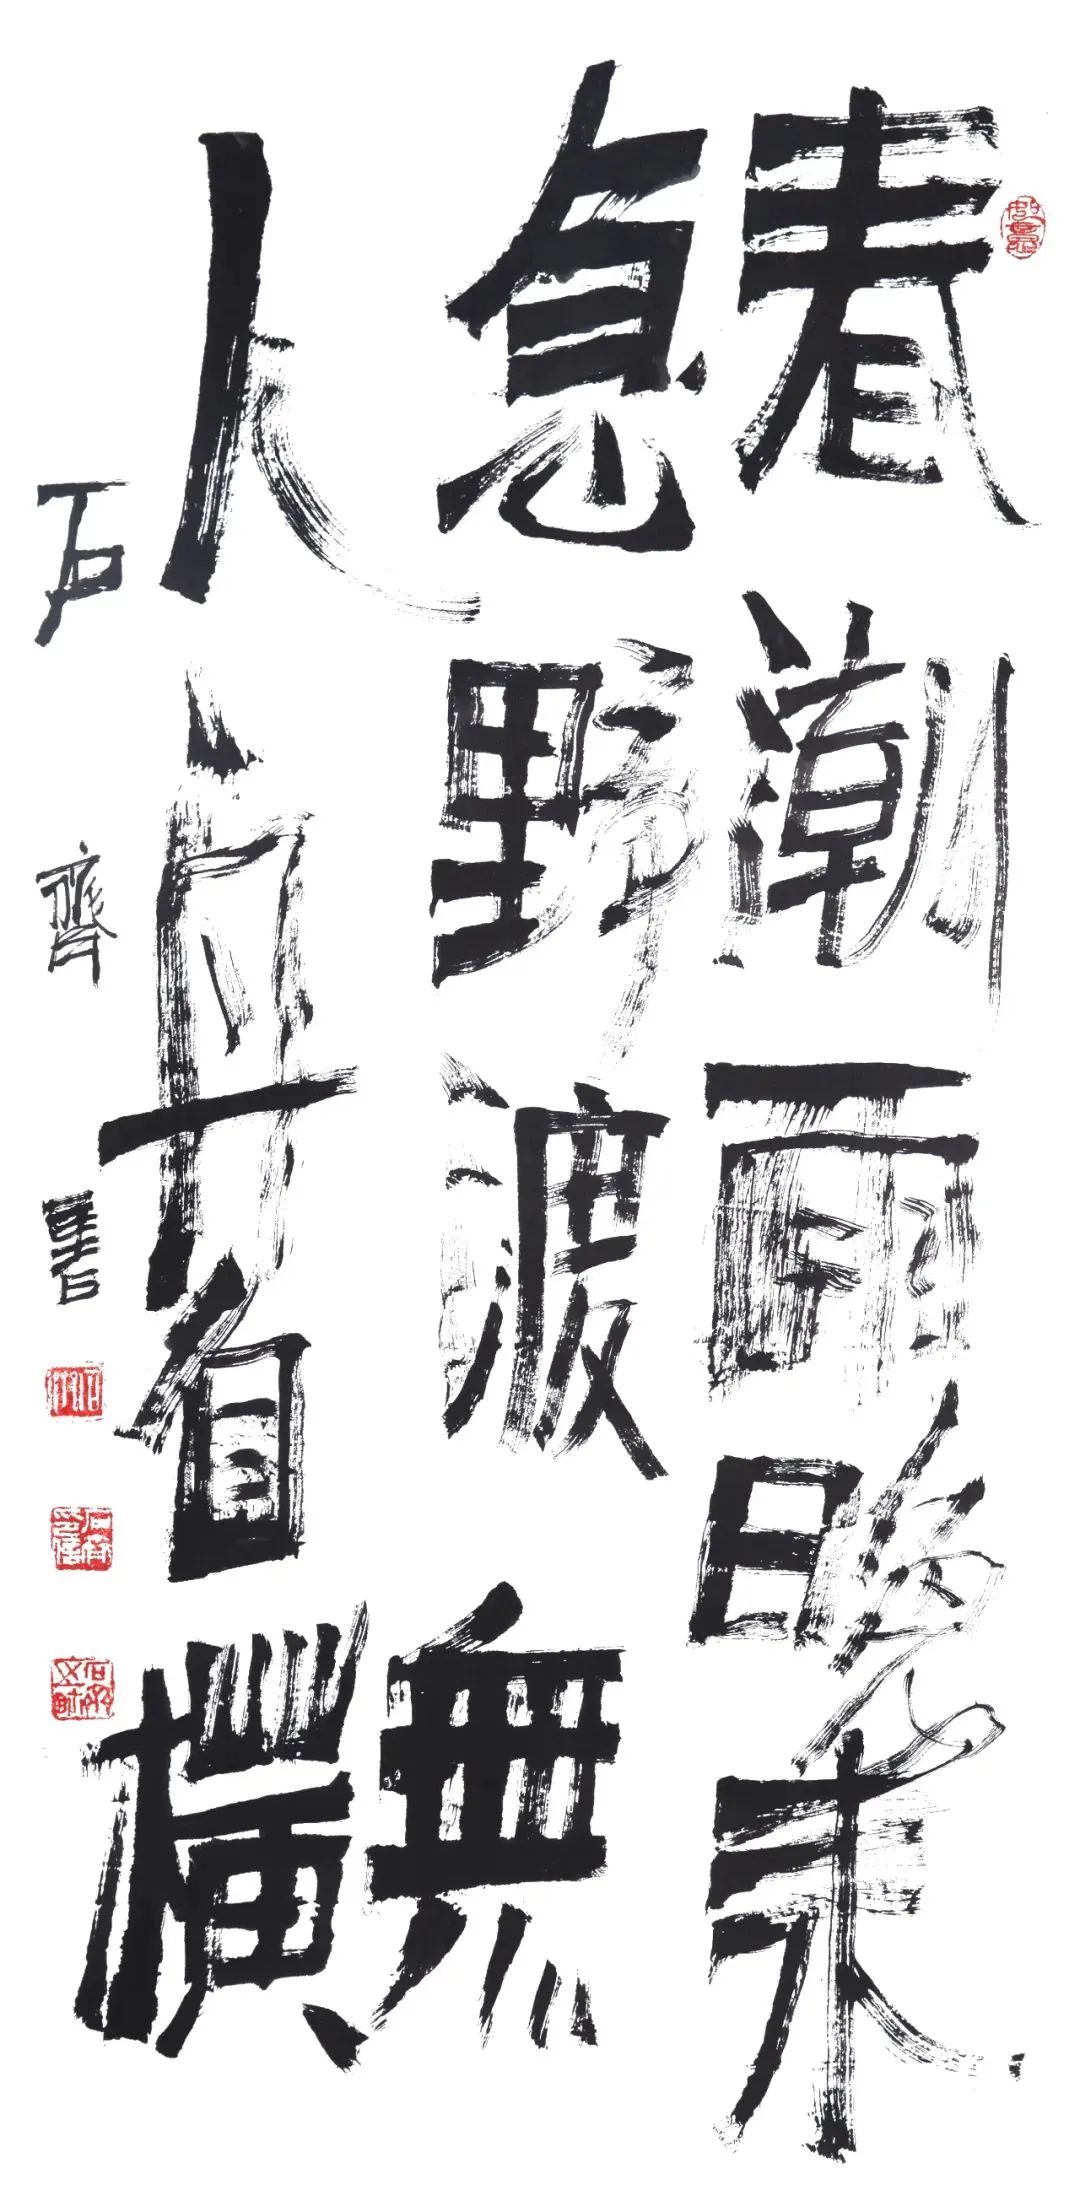 春潮雨晚来
急野渡無
人舟自横
石齊書